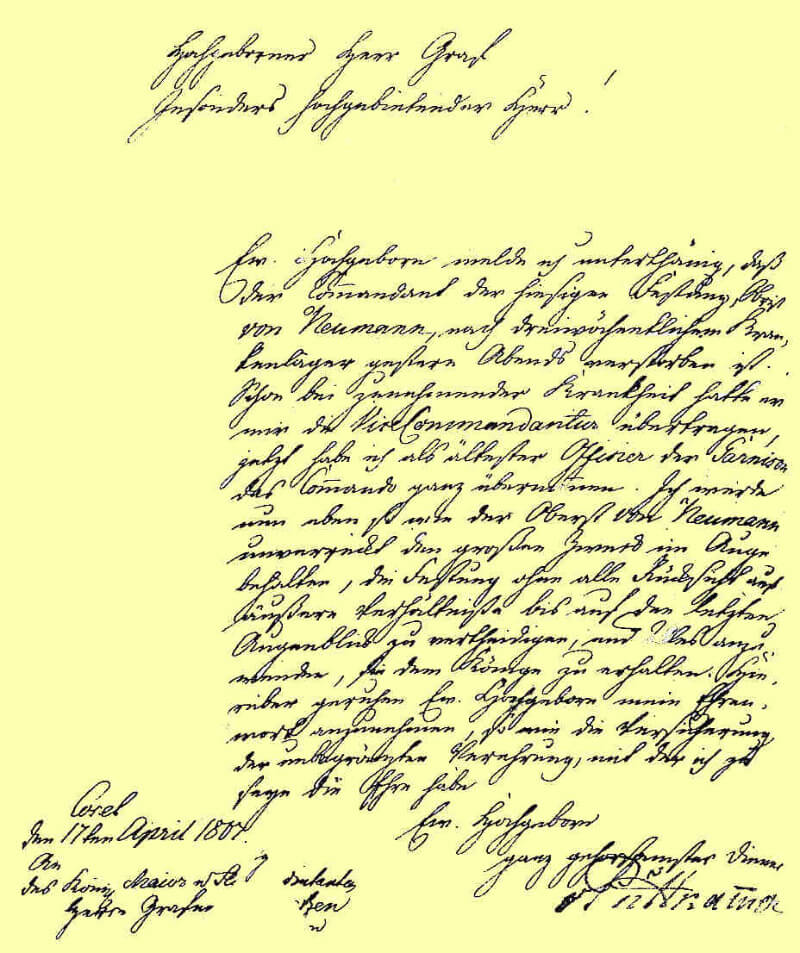 Hochgeborner Herr Graf
Besonders hochgebietender Herr!
Ew. Hochgeborn melde ich unterthänig, daß
der Commandant der hiesigen Festung, Obrist
von Neumann, nach dreiwöchentlichem Kran-
kenlager gestern Abends verstorben ist.
Schon bei zunehmender Krankheit hatte er
mir die ViceCommandantur übertragen,
jetzt habe ich als ältester Offizier der Garnison
das Commando ganz übernommen. Ich werde
nun eben so wie der Oberst von Neumann
unverrückt den großen Zweck im Auge
behalten, die Festung ohne alle Rücksicht auf
äußere Verhältniße bis auf den letzten
Augenblick zu vertheidigen, und Alles anzu-
wenden, sie dem Könige zu erhalten. Hie-
rüber geruhen Ew. Hochgeborn mein Ehren-
wort anzunehmen, so wie die Versicherung
der unbegränzten Verehrung, mit der ich zu
seyn die Ehre habe
Ew. Hochgeborn
ganz gehorsamster Diener
v Puttkamer
Cosel
den 17ten April 1807.
An
des König. Major
Herrn Grafen